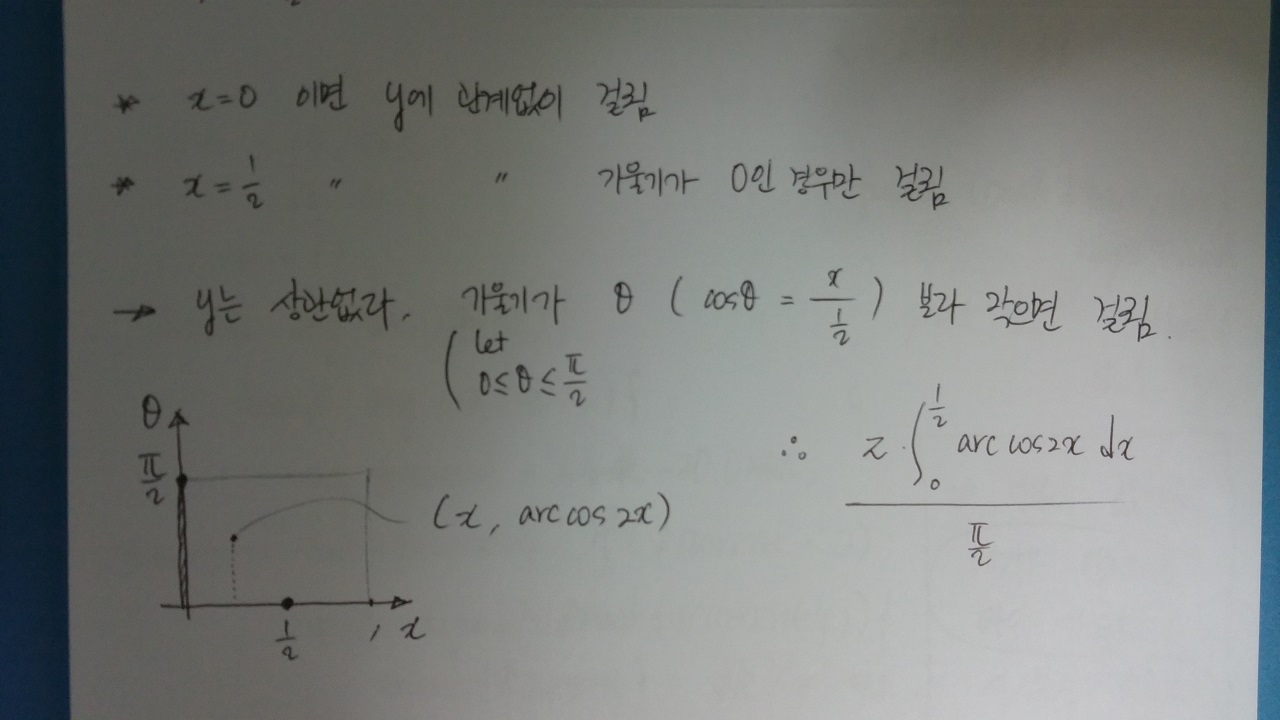 * x=0 이면 y에 관계없이 걸림
* x=1/2 〃 〃 기울기가 0인 경우만 걸림
→ y는 상관없다. 기울기가 θ ( cosθ = x/(1/2) ) 보다 작으면 걸림.
( let
0≤θ≤π/2
θ
π/2
(x, arccos 2x)
1/2 1 x
∴ 2·∫₀^(1/2) arc cos2x dx
π/2